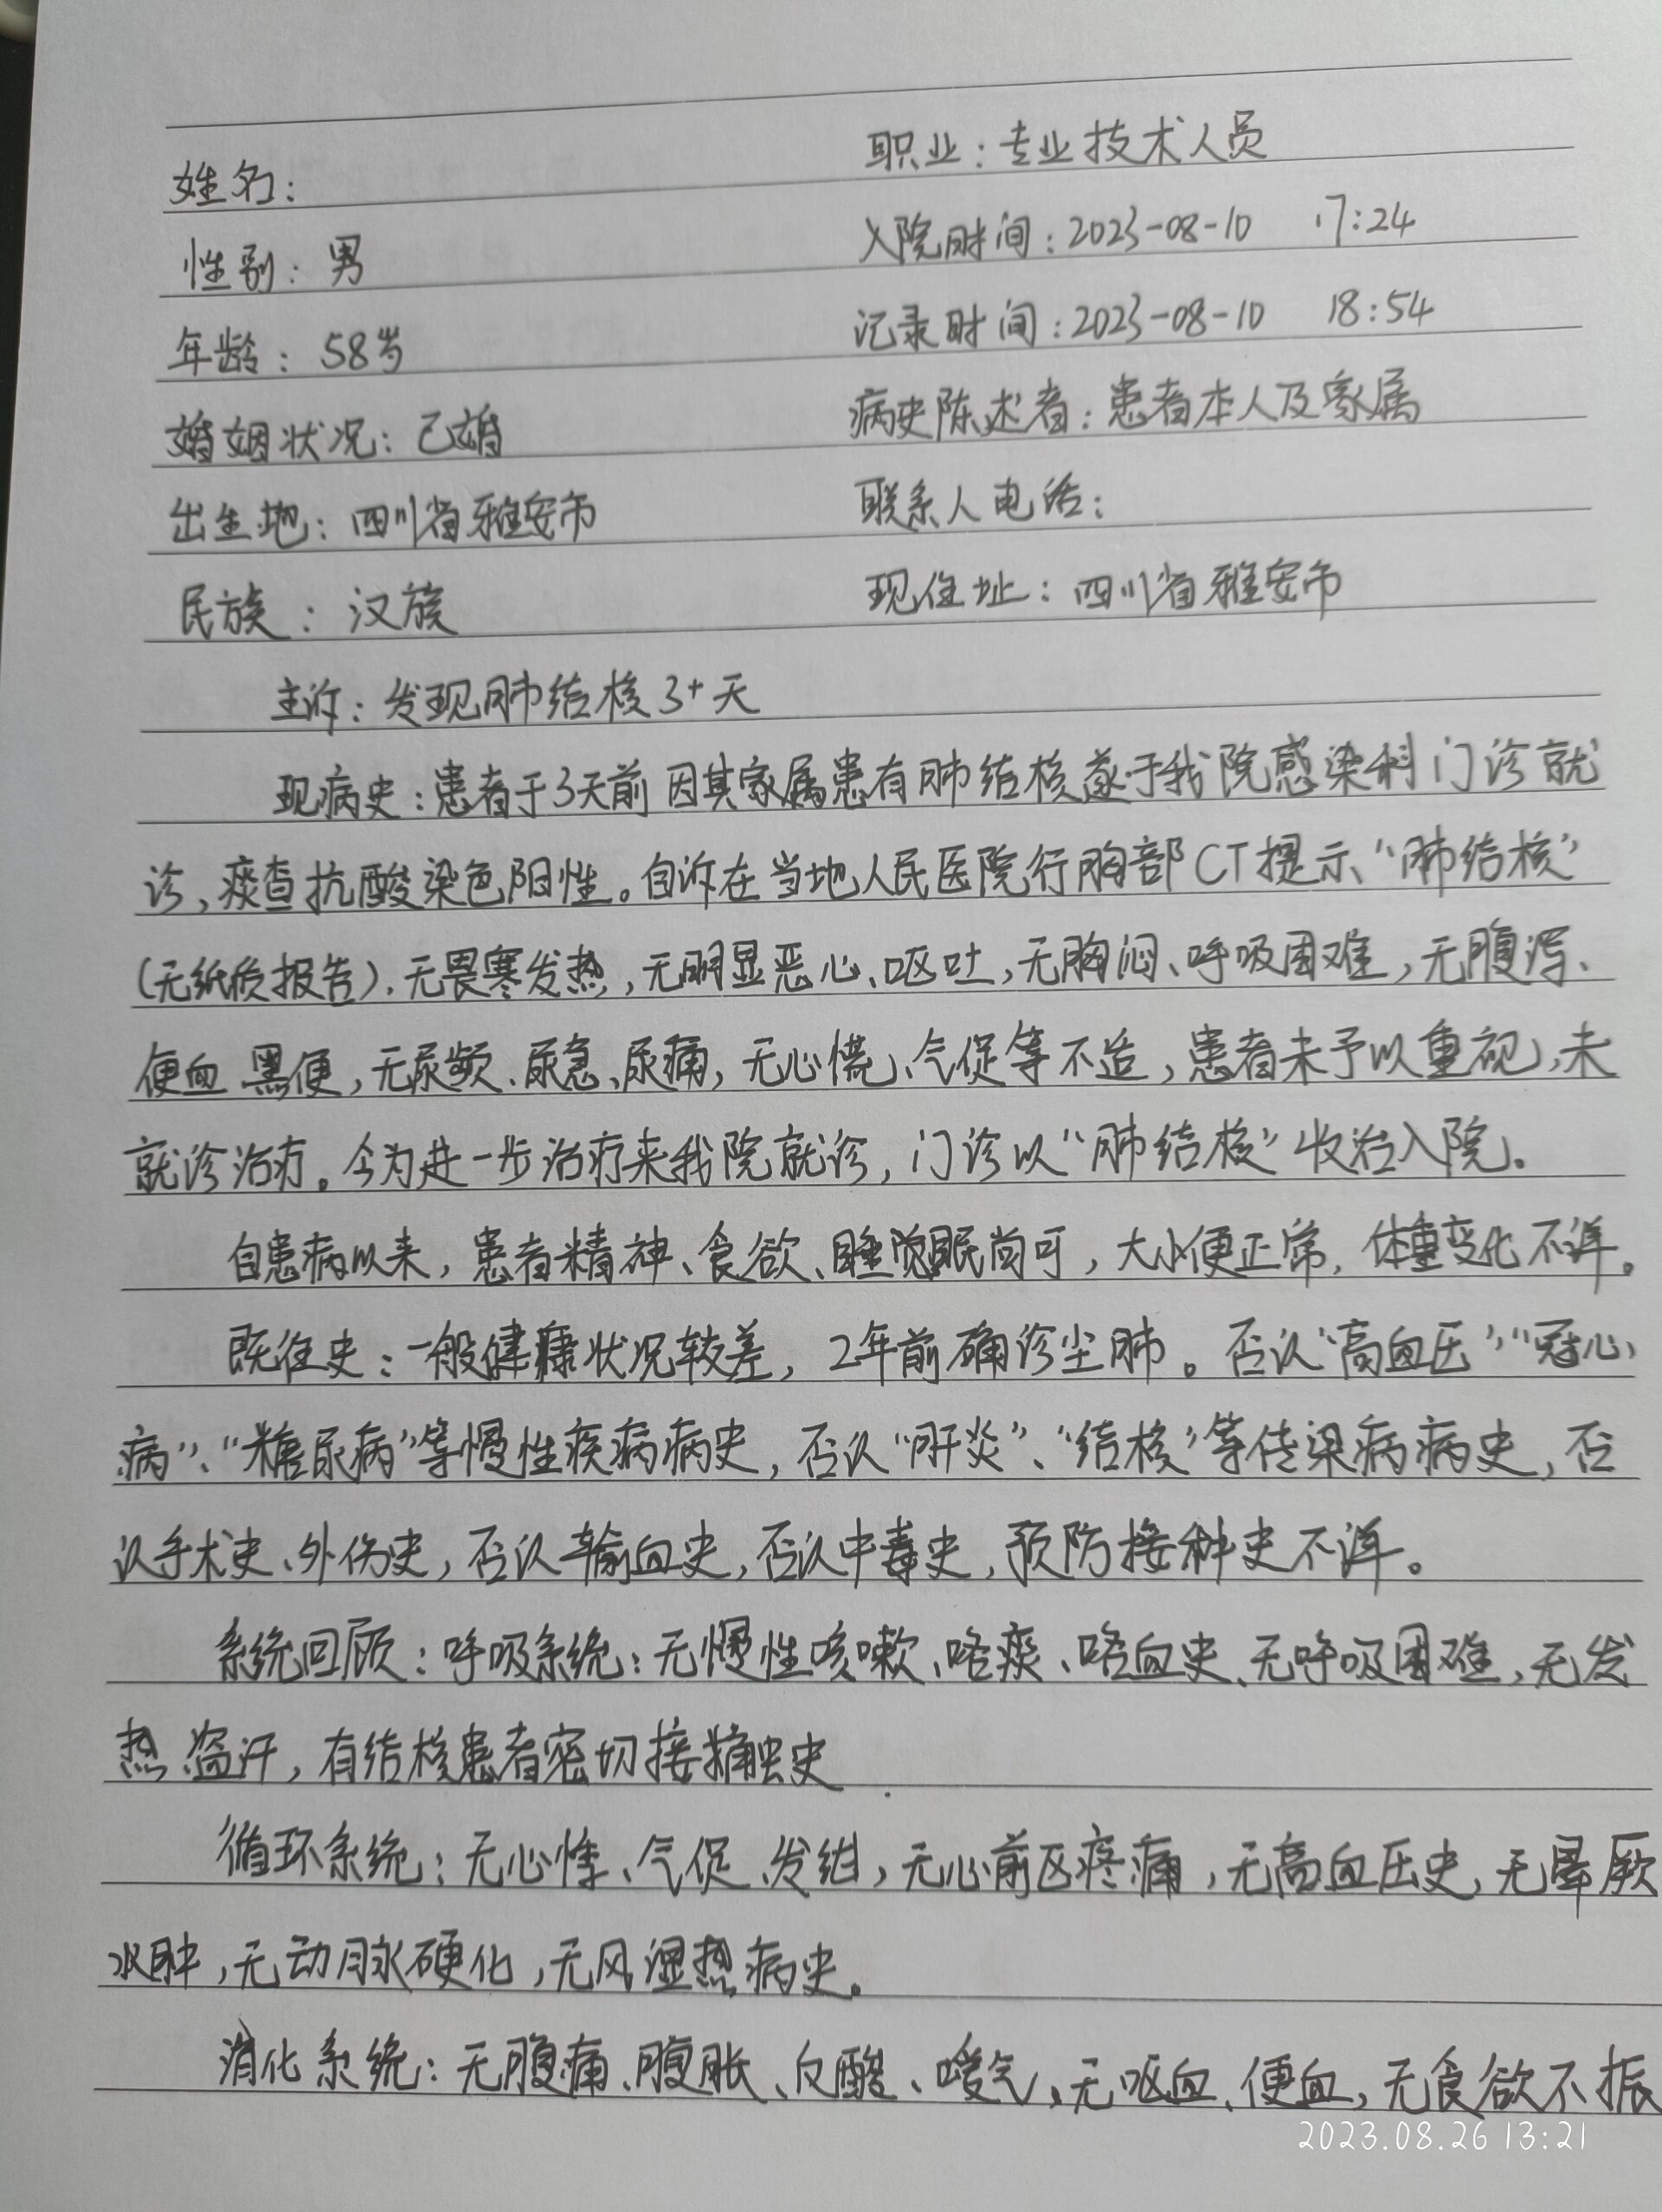 姓名: 职业:专业技术人员
性别:男 入院时间:2023-08-10 17:24
年龄:58岁 记录时间:2023-08-10 18:54
婚姻状况:已婚 病史陈述者:患者本人及家属
出生地:四川省雅安市 联系人电话:
民族:汉族 现住址:四川省雅安市
主诉:发现肺结核3+天
现病史:患者于3天前因其家属患有肺结核遂于我院感染科门诊就
诊,痰查抗酸染色阳性。自诉在当地人民医院行胸部CT提示“肺结核”
(无纸质报告).无畏寒发热,无明显恶心、呕吐,无胸闷、呼吸困难,无腹泻、
便血 黑便,无尿频、尿急、尿痛,无心慌、气促等不适,患者未予以重视,未
就诊治疗。今为进一步治疗来我院就诊,门诊以“肺结核”收治入院。
自患病以来,患者精神、食欲、睡眠尚可,大小便正常,体重变化不详。
既往史:一般健康状况较差,2年前确诊尘肺。否认“高血压”“冠心
病”、“糖尿病”等慢性疾病病史,否认“肝炎”、“结核”等传染病病史,否
认手术史、外伤史,否认输血史,否认中毒史,预防接种史不详。
系统回顾:呼吸系统:无慢性咳嗽、咯痰、咯血史、无呼吸困难,无发
热、盗汗,有结核患者密切接触史
循环系统:无心悸、气促、发绀,无心前区疼痛,无高血压史,无晕厥
水肿,无动脉硬化,无风湿热病史。
消化系统:无腹痛、腹胀、反酸、嗳气,无呕血、便血,无食欲不振
2023.08.26 13:21